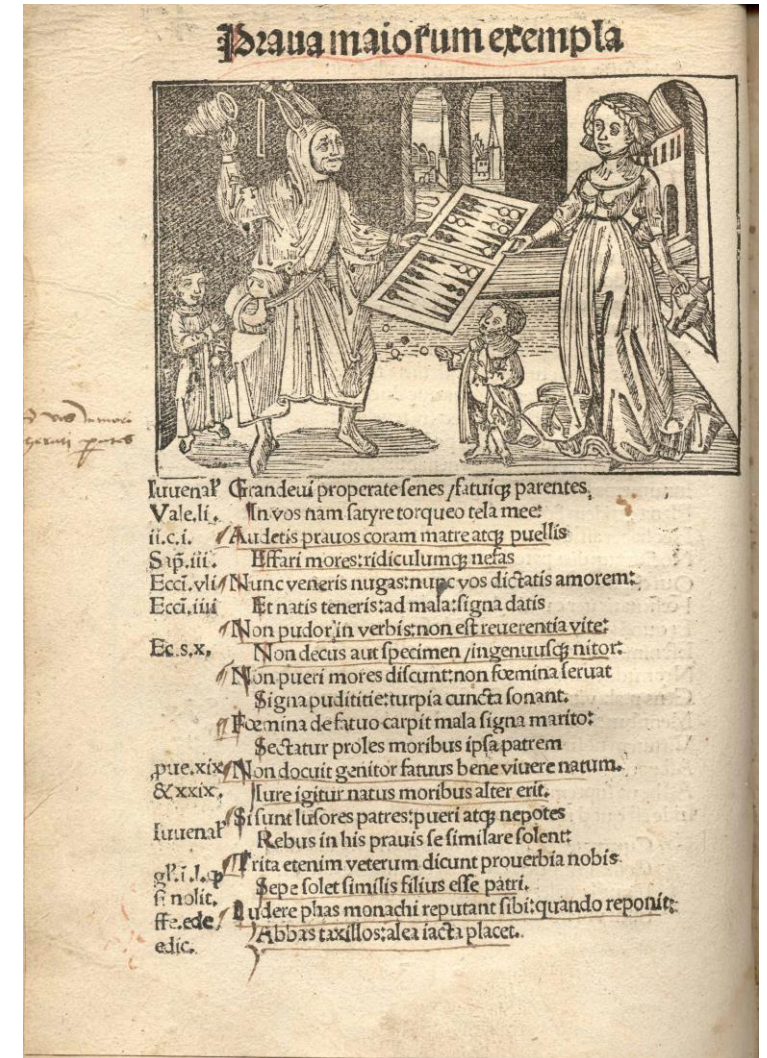 Praua maiorum exempla
Iuuenaƚ Grandeui properate senes / fatuiqȝ parentes,
Vale.li. In vos nam satyre torqueo tela mee:
ii.c.i. Audetis prauos coram matre atqȝ puellis
Sap̄.iii. Effari mores: ridiculumqȝ nefas
Ecc̄i.vli Nunc veneris nugas: nunc vos dictatis amorem:
Ecc̄i.iiii Et natis teneris: ad mala: signa datis
Non pudor in verbis: non est reuerentia vite:
Ec.s.x, Non decus aut specimen / ingenuusqȝ nitor:
Non pueri mores discunt: non fœmina seruat
Signa pudititie: turpia cuncta sonant.
Fœmina de fatuo carpit mala signa marito:
Sectatur proles moribus ipsa patrem
ꝓue.xix Non docuit genitor fatuus bene viuere natum.
&xxix. Iure igitur natus moribus alter erit.
Si sunt lusores patres: pueri atqȝ nepotes
Iuuenaƚ Rebus in his prauis se similare solent:
Trita etenim veterum dicunt prouerbia nobis
gƚ.ī.l.ꝙ Sepe solet similis filius esse patri.
si nolit. Ludere phas monachi reputant sibi: quando reponit:
ffe.ede Abbas taxillos: alea iacta placet.
edic.